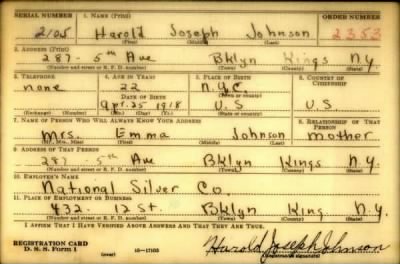 SERIAL NUMBER 1. NAME (Print) ORDER NUMBER
2105 Harold Joseph Johnson 2353
(First) (Middle) (Last)
2. ADDRESS (Print)
287 - 5th Ave Bklyn Kings N.Y.
(Number and street or R. F. D. number) (Town) (County) (State)
3. TELEPHONE 4. AGE IN YEARS 5. PLACE OF BIRTH 6. COUNTRY OF CITIZENSHIP
none 22 N.Y.C.
DATE OF BIRTH (Town or county)
Apr. 25 1918 U.S U.S
(Exchange) (Number) (Mo.) (Day) (Yr.) (State or country)
7. NAME OF PERSON WHO WILL ALWAYS KNOW YOUR ADDRESS 8. RELATIONSHIP OF THAT PERSON
Mrs. Emma Johnson mother
(Mr., Mrs., Miss) (First) (Middle) (Last)
9. ADDRESS OF THAT PERSON
287 - 5th Ave Bklyn Kings N.Y.
(Number and street or R. F. D. number) (Town) (County) (State)
10. EMPLOYER'S NAME
National Silver Co.
11. PLACE OF EMPLOYMENT OR BUSINESS
432 - 12 St. Bklyn King N.Y.
(Number and street or R. F. D. number) (Town) (County) (State)
I AFFIRM THAT I HAVE VERIFIED ABOVE ANSWERS AND THAT THEY ARE TRUE.
REGISTRATION CARD
D. S. S. Form 1 (over) Harold Joseph Johnson
(Registrant's signature)